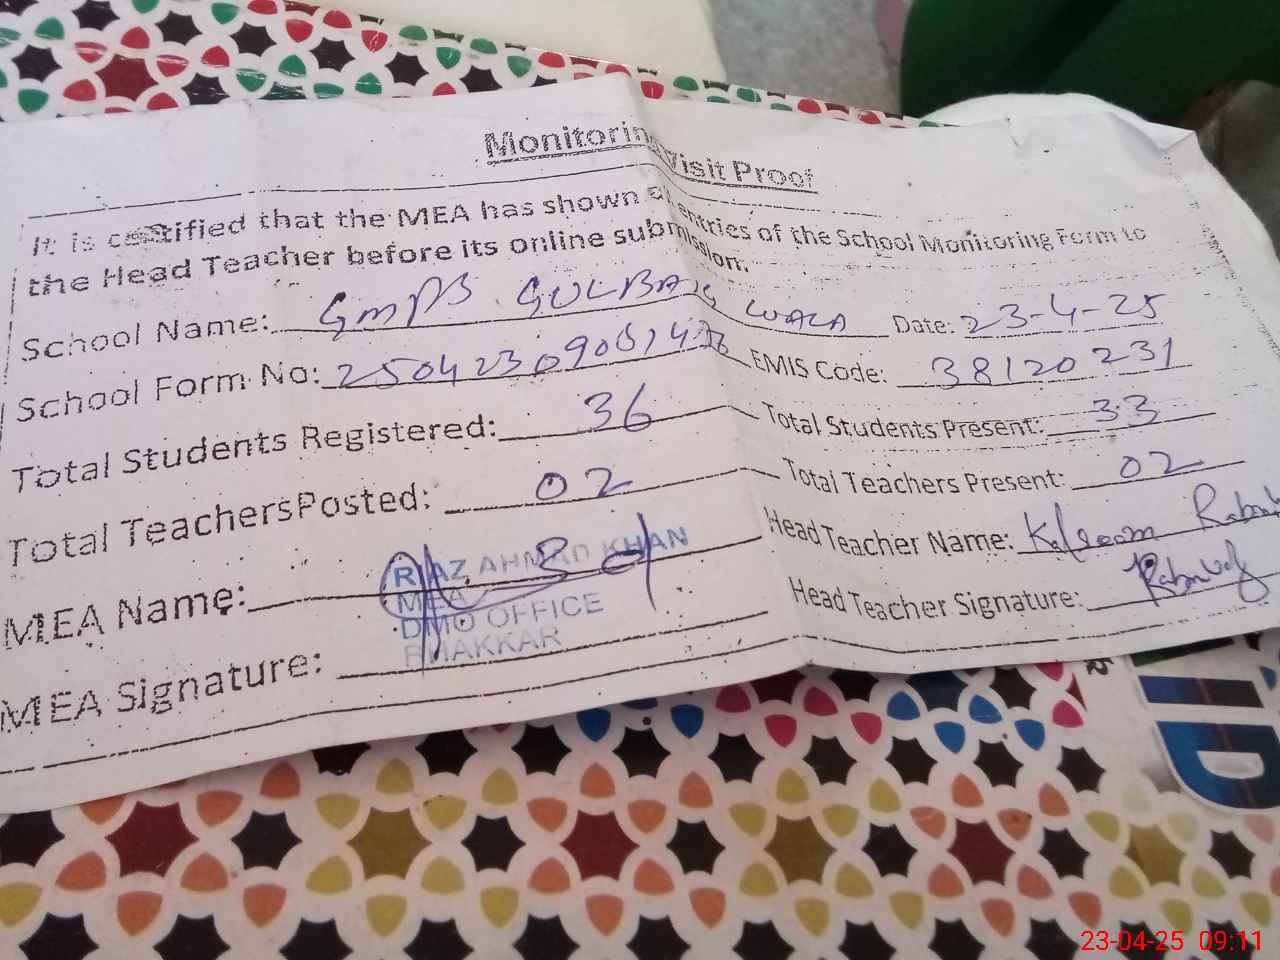 Monitoring Visit Proof
It is certified that the MEA has shown all entries of the School Monitoring Form to
the Head Teacher before its online submission.
School Name: GMPS GULBAIG WALA Date: 23-4-25
School Form No: EMIS Code: 38120231
Total Students Registered: 36 Total Students Present: 33
Total TeachersPosted: 02 Total Teachers Present: 02
MEA Name: Head Teacher Name: Kalsoom
RIAZ AHMAD KHAN
MEA
DMO OFFICE
BHAKKAR
MEA Signature: Head Teacher Signature:
ID
23-04-25 09:11